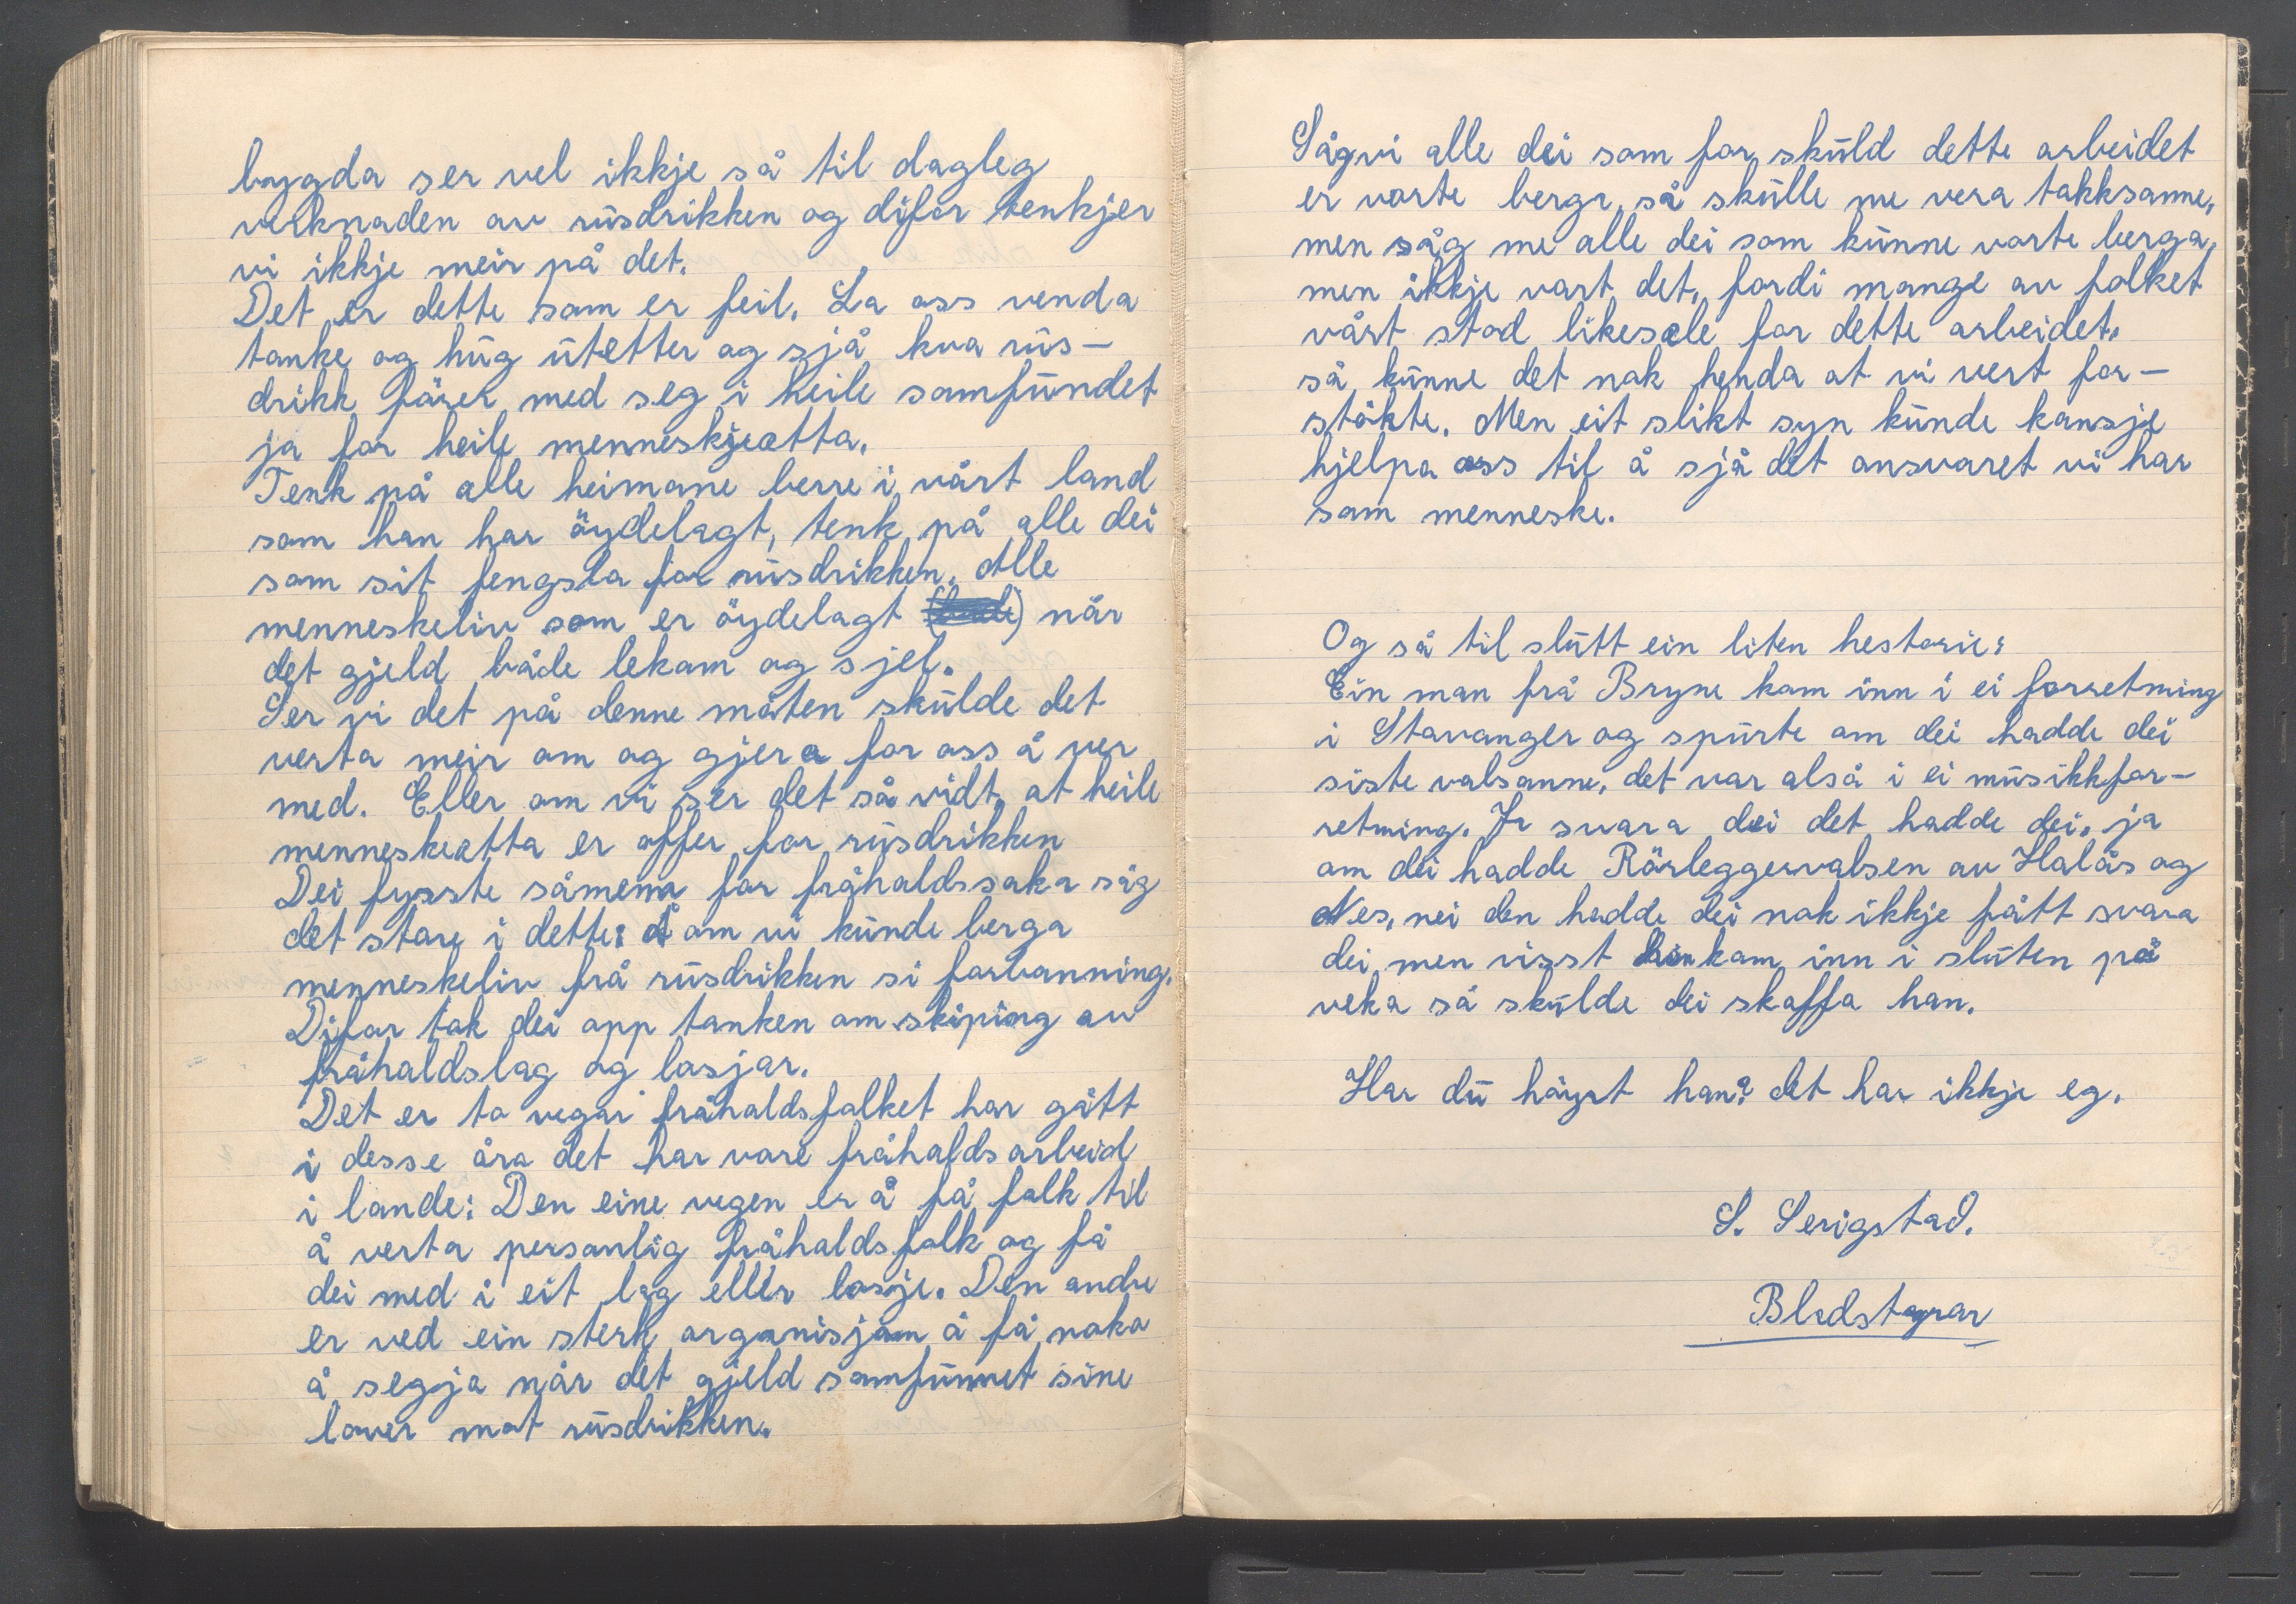 bygda ser vel ikkje så til dagleg
verknaden av rusdrikken og difor tenkjer
vi ikkje meir på det.
Det er dette som er feil. La oss venda
tanke og hug utetter og sjå kva rus-
drikk förer med seg i heile samfundet
ja for heile menneskjeætta.
Tenk på alle heimane berre i vårt land
som han har öydelagt, tenk på alle dei
som sit fengsla for rusdrikken. Alle
menneskeliv som er öydelagt når
det gjeld både lekam og sjel.
Ser vi det på denne måten skulde det
verta meir om og gjera for oss å ver
med. Eller om vi ser det så vidt, at heile
menneskeætta er offer for rusdrikken
Dei fysste såmenn for fråhaldssaka såg
det store i dette: Å om vi kunde berga
menneskeliv frå rusdrikken si forbanning.
Difor tok dei opp tanken om skiping av
fråhaldslag og losjar.
Det er to vegar fråhaldsfolket har gått
i desse åra det har vore fråhaldsarbeid
i lande: Den eine vegen er å få folk til
å verta personlig fråhaldsfolk og få
dei med i eit lag eller losje. Den andre
er ved ein sterk organisjom å få noko
å segja når det gjeld samfunnet sine
lover mot rusdrikken.
Såg vi alle dei som for skuld dette arbeidet
er vorte berga, så skulle me vera takksamme,
men såg me alle dei som kunne vorte berga,
men ikkje vart det, fordi mange av folket
vårt stod likesæle for dette arbeidet.
så kunne det nok henda at vi vert for-
stökte. Men eit slikt syn kunde kansje
hjelpa oss til å sjå det ansvaret vi har
som menneske.
Og så til slutt ein liten hestorie:
Ein man frå Bryne kom inn i ei forretming
i Stavanger og spurte om dei hadde dei
siste valsanne, det var alså i ei musikkfor-
retming. Ja svara dei det hadde dei, ja
om dei hadde Rörleggervalsen av Halås og
Nes, nei den hadde dei nok ikkje fått svara
dei, men visst han kom inn i sluten på
veka så skulde dei skaffa han.
Har du höyrt han? det har ikkje eg.
S. Serigstad.
Bladstyrar